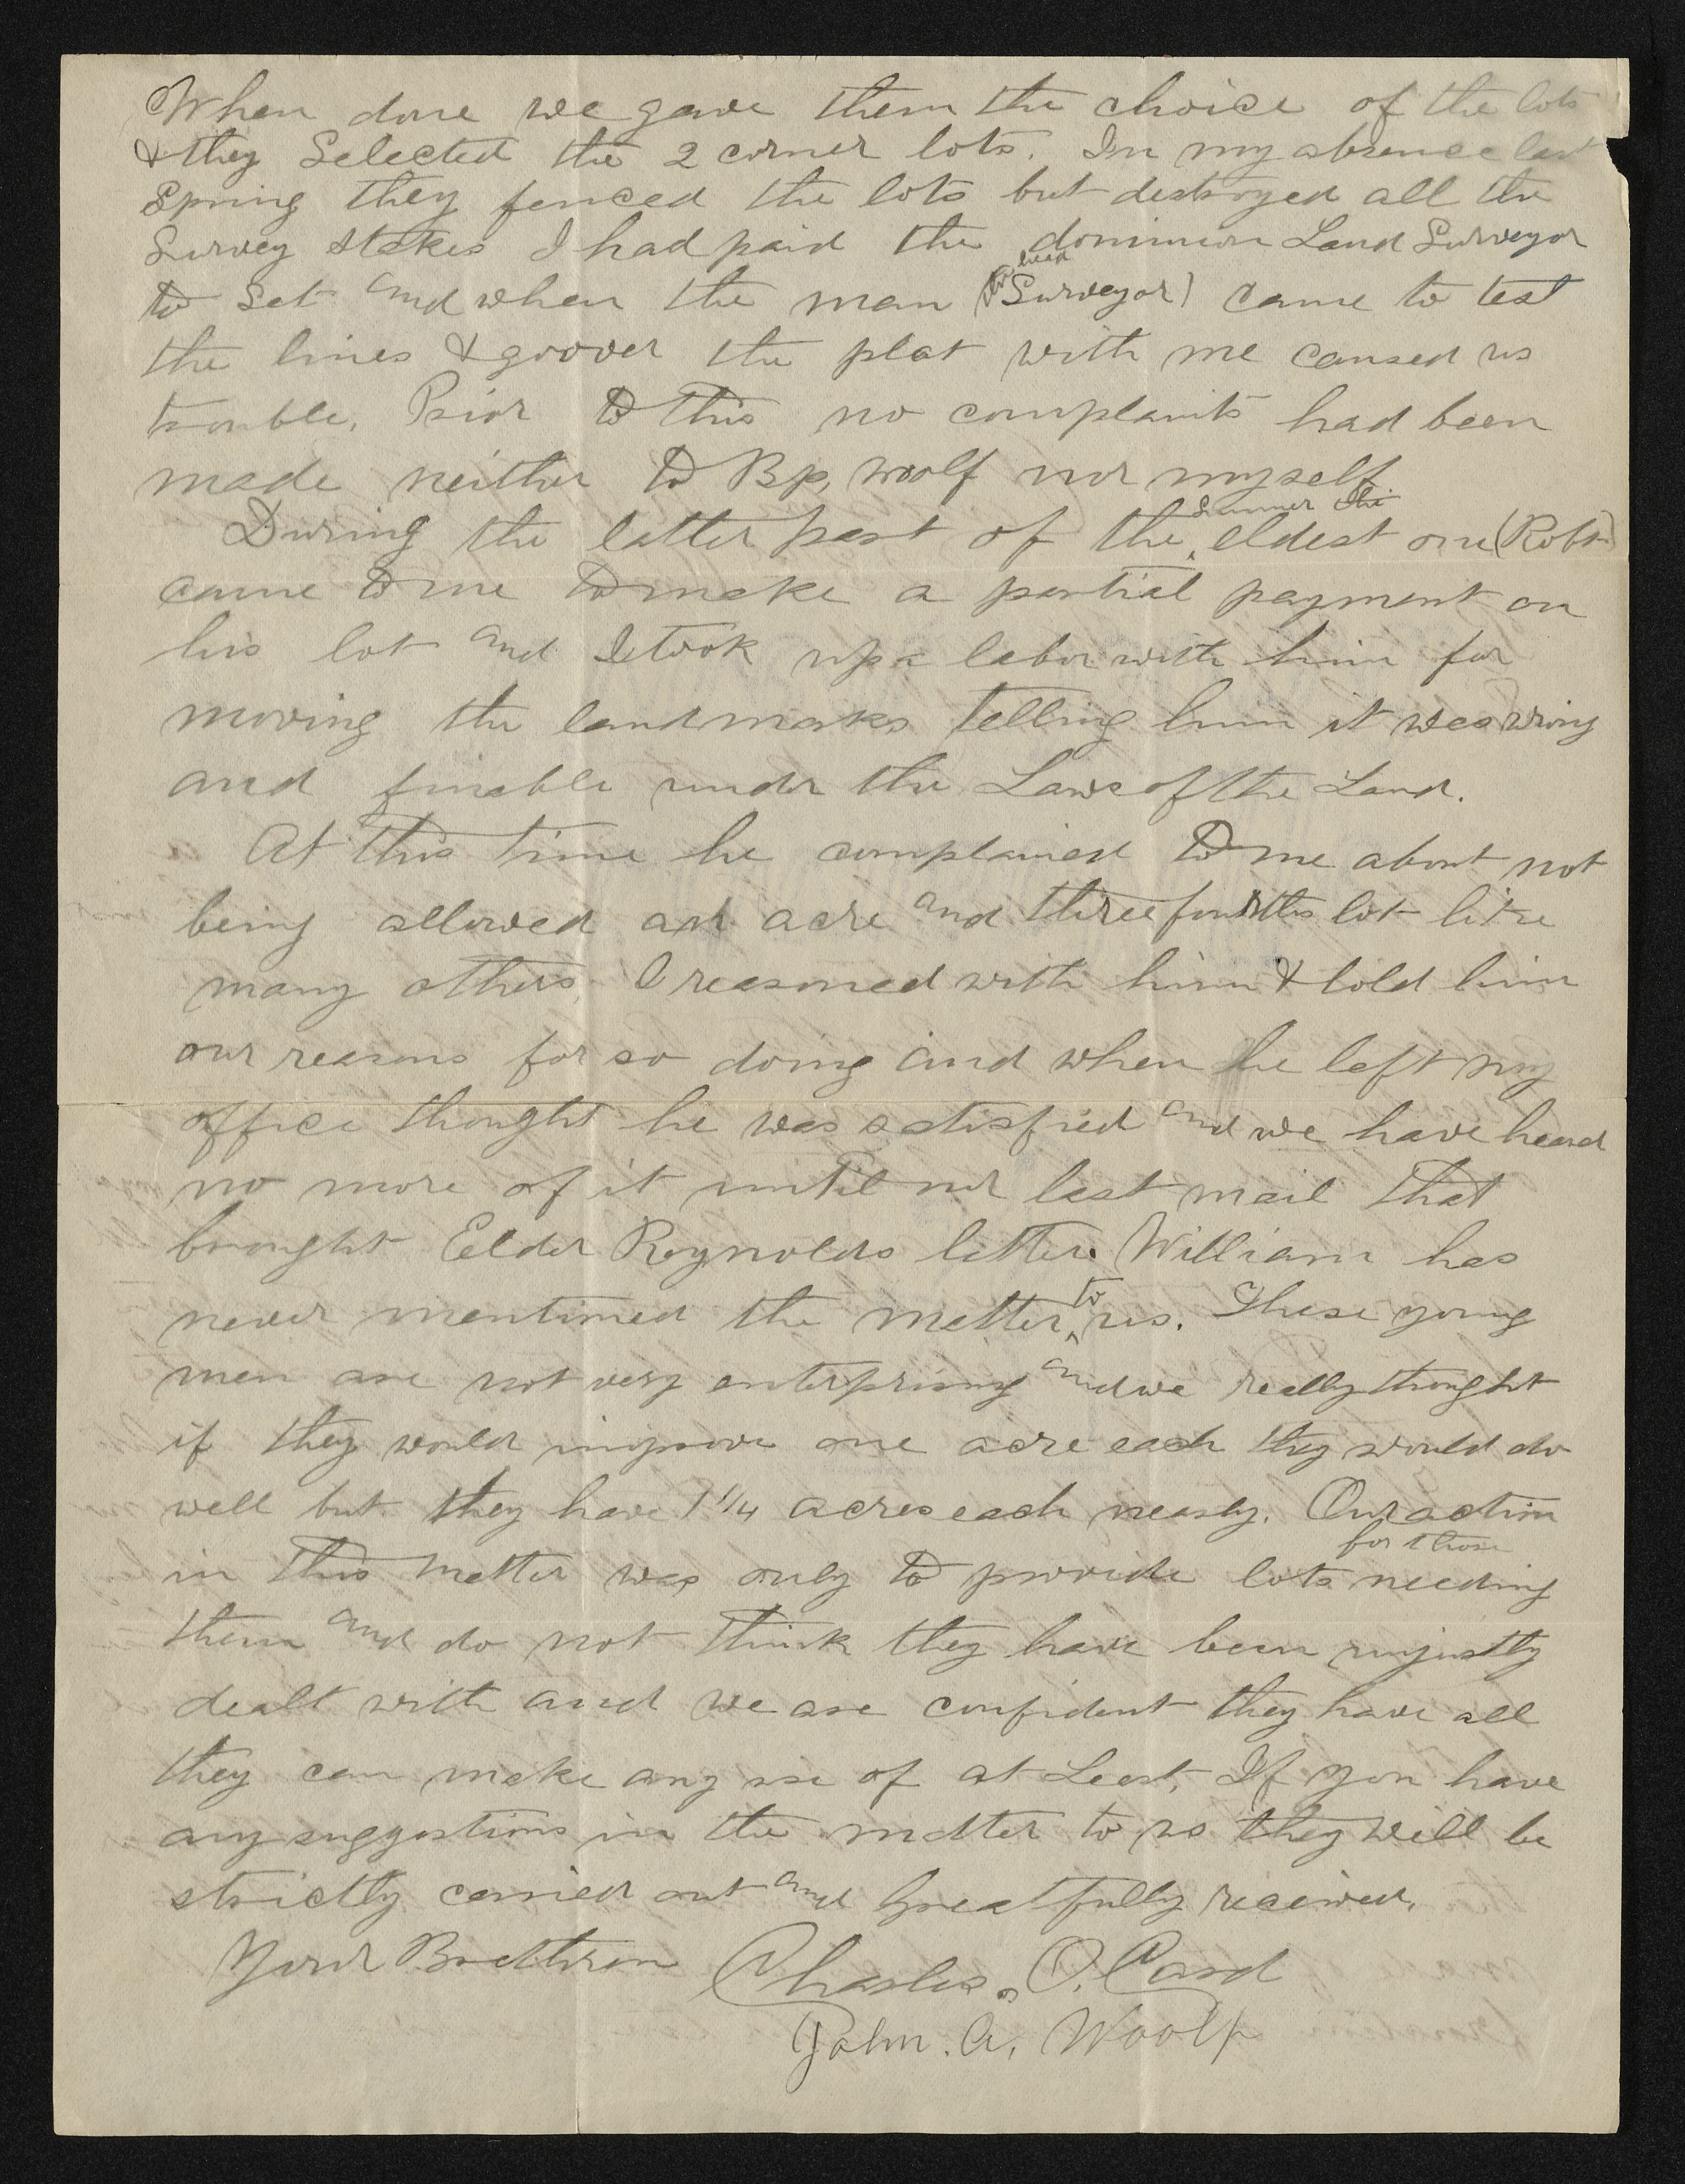 When done we gave them the choice of the lots
& they Selected the 2 corner lots. In my absence last
Spring they fenced the lots but destroyed all the
Survey stakes I had paid the dominion Land Surveyor
to set and when the man (Surveyor) came to test
the lines & goover the plat with me caused us
trouble. Prior to this no complaints had been
made neither to Bp, Woolf nor myself.
Summer the
During the latter part of the eldest one (Robt)
came to me to make a partial payment on
his lot and I took up a labor with him for
moving the landmarks telling him it was wrong
and fineable under the Laws of the Land.
At this time he complained to me about not
being allowed an acre and three fourths lot like
many others, I reasoned with him & told him
our reasons for so doing and when he left my
office thought he was satisfied and we have heard
no more of it until our last mail that
brought Elder Reynolds letter. William has
never mentioned the matter to us. These young
men are not very enterprising and we really thought
if they would improve one acre each they would do
well but they have 1 1/4 acres each nearly. Our action
for those
in this matter was only to provide lots needing
them and do not think they have been unjustly
dealt with and we are confident they have all
they can make any use of at Least, If you have
any suggestions in the matter to us they will be
strictly carried out and greatfully received.
Your Brethren Charles. O. Card
John. A, Woolf